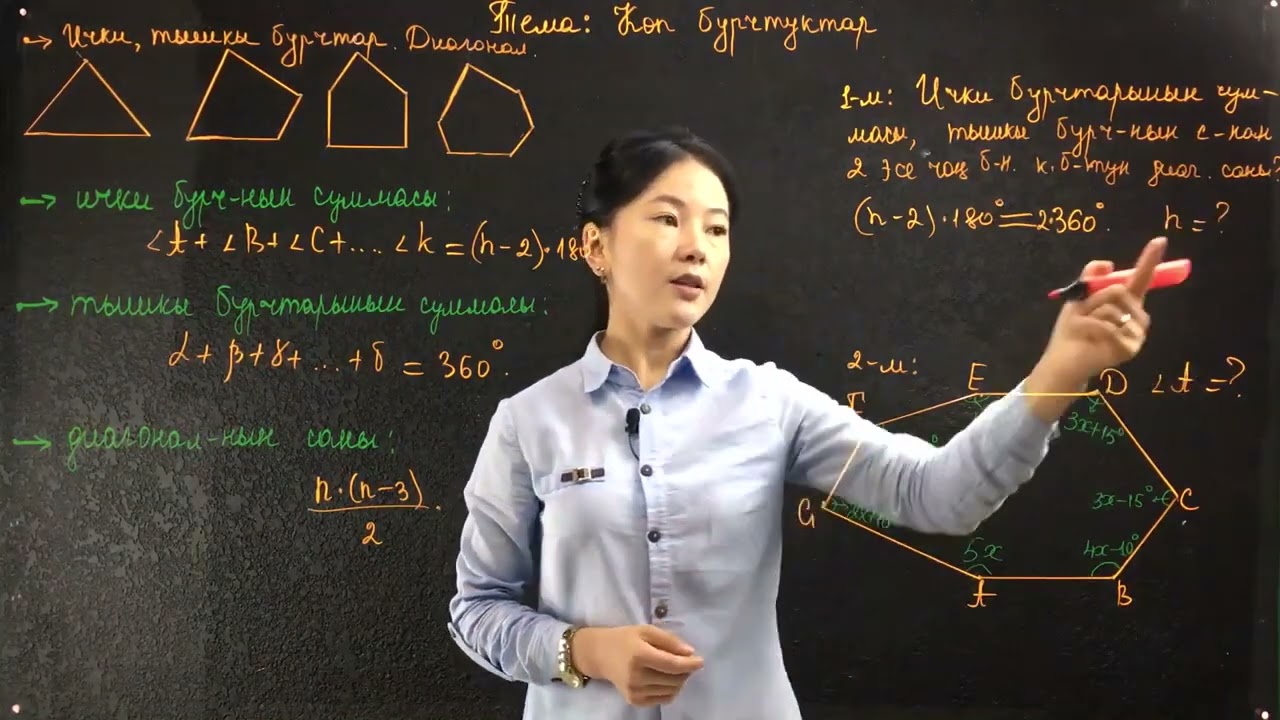 Тема: Көп бурчтуктар
→ Ички, тышкы бурчтар. Диагонал.
→ ички бурч-нын суммасы:
∠A + ∠B + ∠C + .... ∠k = (n-2)·180
→ тышкы бурчтарынын суммасы:
α + β + γ + ... + δ = 360°.
→ диагонал-нын саны:
n·(n-3)
2
1-м: Ички бурчтарынын сум-
масы, тышкы бурч-нын с-нан
2 эсе чоң б-н. к.б-тун диаг. саны?
(n-2)·180° = 2·360°. n = ?
2-м:
∠A = ?
E
D
3x+15°
3x-15°
C
G
5x
4x-10°
A
B